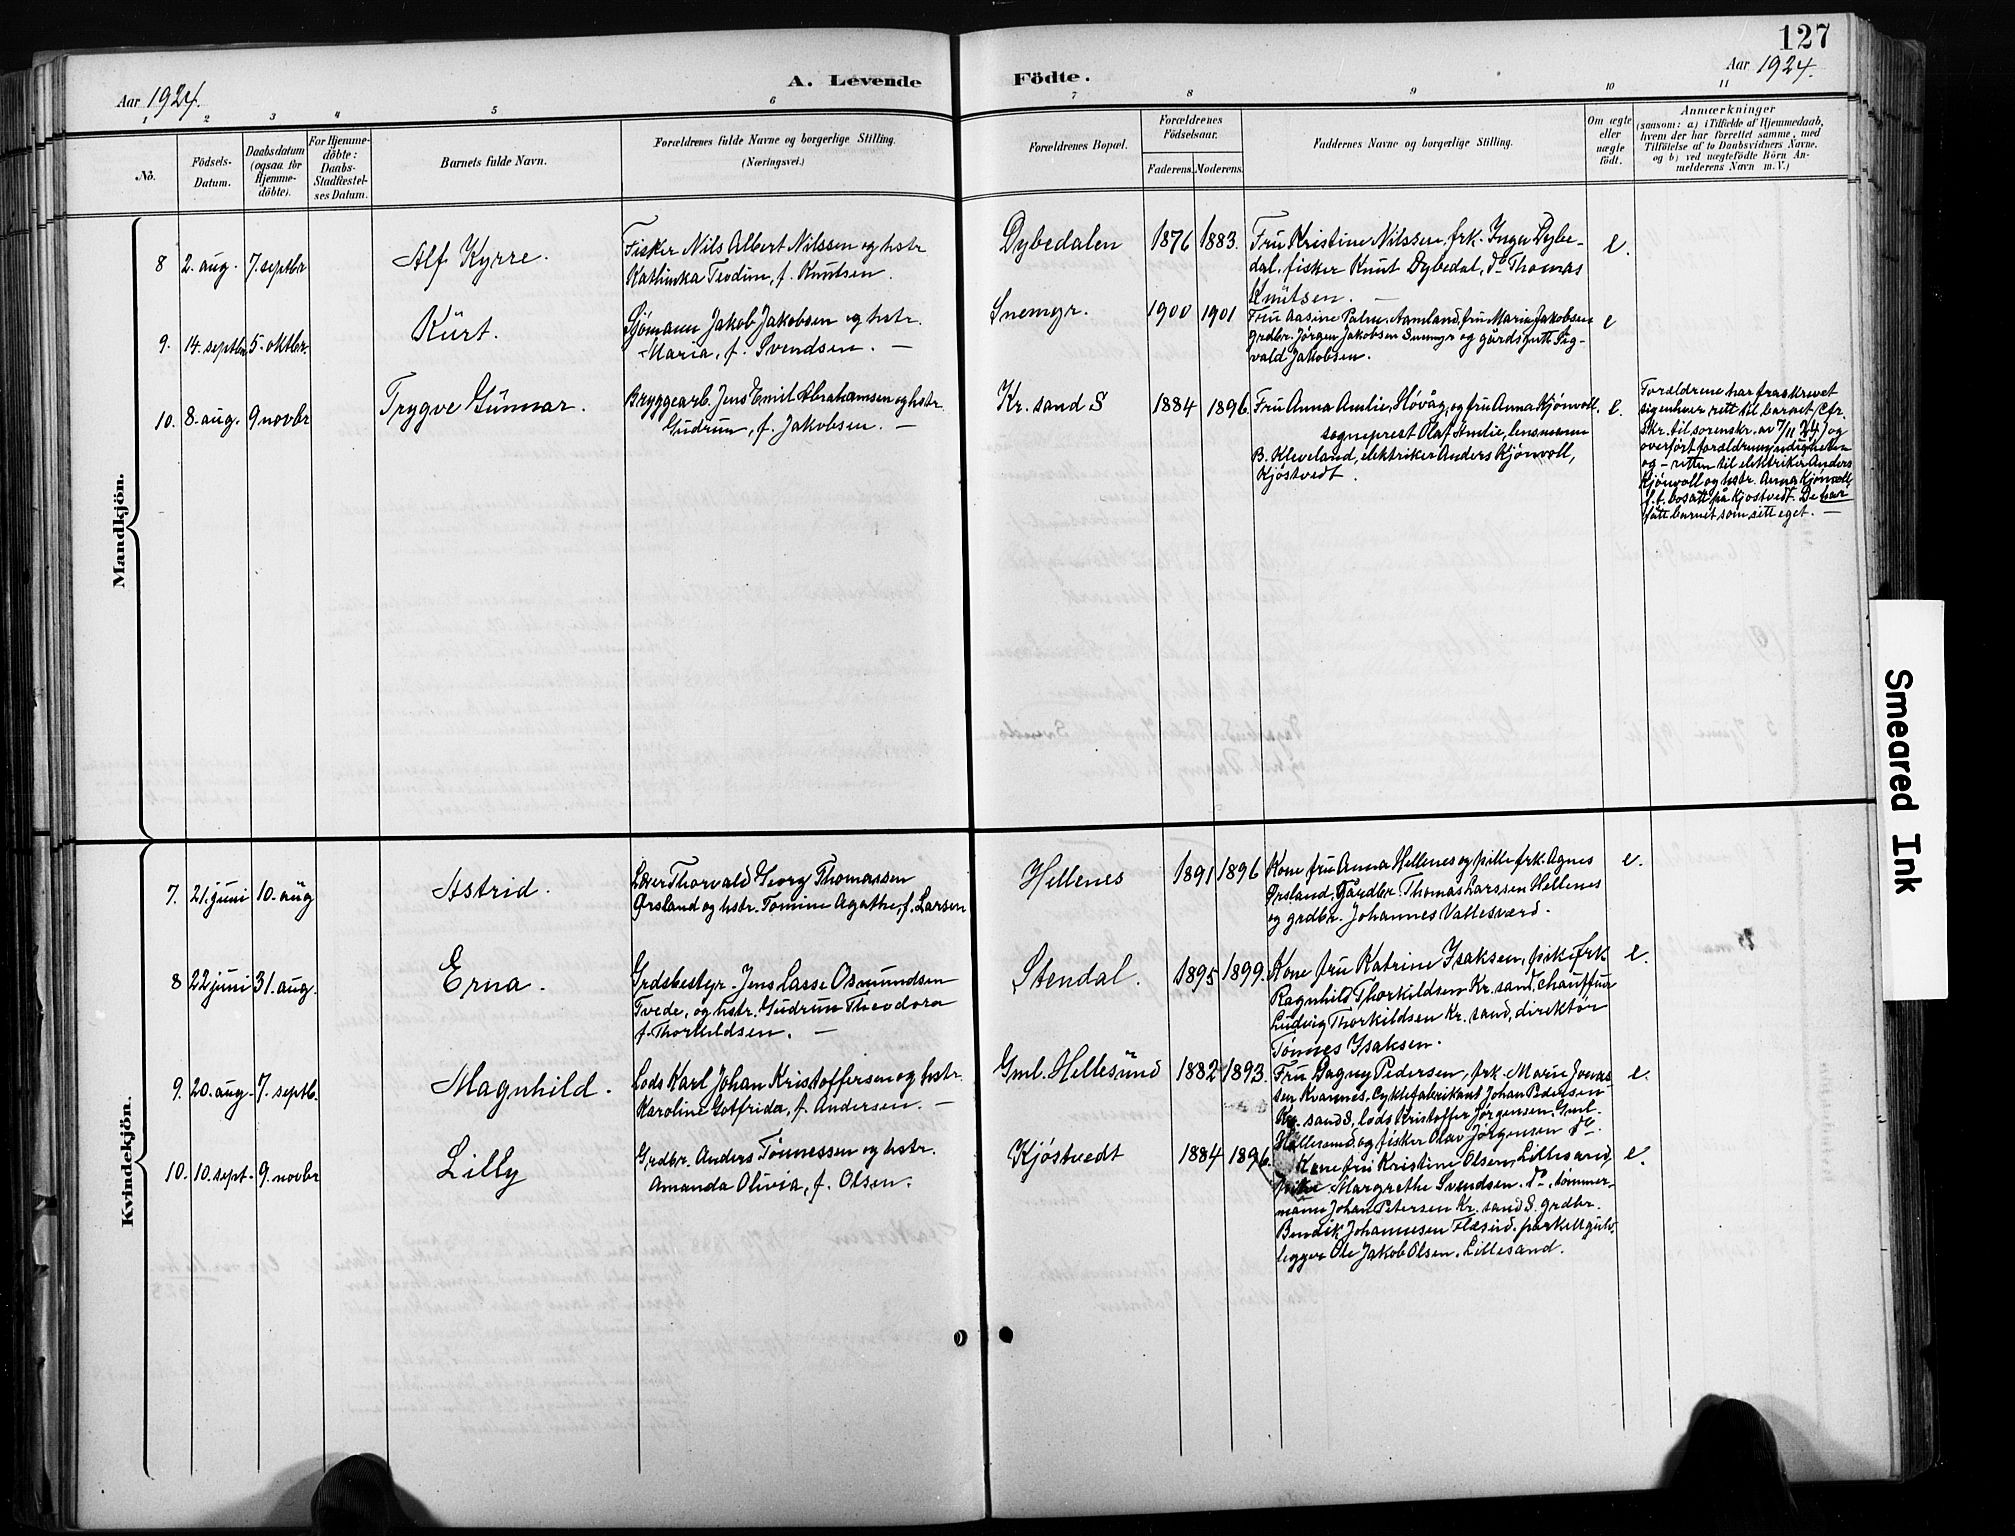 127
Aar 1924.
A. Levende Födte.
Aar 1924.
1 2 3 4 5 6 7 8 9 10 11
No.
Födsels-Datum.
Daabsdatum (ogsaa for Hjemme-döbte).
For Hjemme-döbte: Daabs-Stadfæstel-ses Datum.
Barnets fulde Navn.
Forældrenes fulde Navne og borgerlige Stilling. (Næringsvei.)
Forældrenes Bopæl.
Forældrenes Födselsaar.
Faderens. Moderens.
Faddernes Navne og borgerlige Stilling.
Om ægte eller uægte födt.
Anmærkninger
(saasom: a) i Tilfælde af Hjemmedaab, hvem der har forrettet samme, med Tilföielse af to Daabsvidners Navne, og b) ved uægtefödte Börn An-melderens Navn m.V.)
Mandkjön.
8 2. aug. 7. septbr Alf Kyrre.
Fisker Nils Albert Nilssen og hstr
Kathinka Teodine, f. Knutsen.
Dybedalen 1876 1883.
Fru Kristine Nilssen, frk. Inga Dybe-
dal, fisker Knut Dybedal, do Thomas
Knutsen. —
e.
9. 14. septbr 5. oktbr. Kurt.
Sjømann Jakob Jakobsen og hstr.
Maria, f. Svendsen. —
Snemyr. 1900 1901
Fru Aasine Palm, Aamland, fru Marie Jakobsen
grdbr. Jørgen Jakobsen Snemyr og gårdsgutt Sig-
vald Jakobsen.
e
10. 8. aug. 9 novbr Trygve Gunnar.
Bryggearb. Jens Emil Abrahamsen og hstr.
Gudrun, f. Jakobsen. —
Kr. sand S 1884 1896.
Fru Anna Amlie, Høvåg, og fru Anna Kjønvoll,
sogneprest Olaf Amlie, lensmann
B. Kleveland, elektriker Anders Kjønvoll,
Kjøstvedt.
e.
Foræeldrene har fraskrevet
sig enhver rett til barnet (cfr.
skr. til sorenskr. av 7/11 24) og
overført forældremyndigheten
og – retten til elektriker Anders
Kjønvoll og hstr. Anna Kjønvoll,
f. t. bosatt på Kjøstvedt. De har
fått barnet som sitt eget. —
Kvindekjön.
7. 21. juni 10. aug Astrid.
Lærer Thorvald Georg Thomassen
Ørsland og hstr. Tomine Agathe, f. Larsen
Hellenes 1891 1896
Kone fru Anna Hellenes og pike frk. Agnes
Ørsland, Gårdbr. Thomas Larssen Hellenes
og grdbr. Johannes Vallesværd.
e.
8 22 juni 31. aug. Erna.
Grdsbestyr. Jens Lasse Osmundsen
Tvede, og hstr. Gudrun Theodora
f. Thorkildsen. —
Stendal. 1895 1899.
Kone fru Katrine Isaksen, pike frk
Ragnhild Thorkildsen Kr. sand, chauffeur
Ludvig Thorkildsen Kr. sand, direktør
Tønnes Isaksen.
e.
9. 20. aug. 7. septb. Magnhild.
Lods Karl Johan Kristoffersen og hstr.
Karoline Gotfrida, f. Andersen. —
Gml. Hellesund 1882 1893.
Fru Dagny Pedersen, frk Marie Jonas-
sen Kvannes, Cyklefabrikant Johan Pedersen
Kr. sand S, lods Kristoffer Jørgensen Gml.
Hellesund og fisker Olav Jørgensen do.
e.
10. 10. sept. 9. novbr Lilly
Grdbr. Anders Tønnessen og hstr.
Amanda Olivia, f. Olsen.
Kjøstvedt 1884 1896.
Kone fru Kristine Olsen, Lillesand,
pike Margrethe Svendsen. do, tømmer-
mann Johan Petersen Kr. sand S. grdbr.
Bendik Johannesen Flesind. parkettgulv-
legger Ole Jakob Olsen. Lillesand.
e.
Smeared Ink